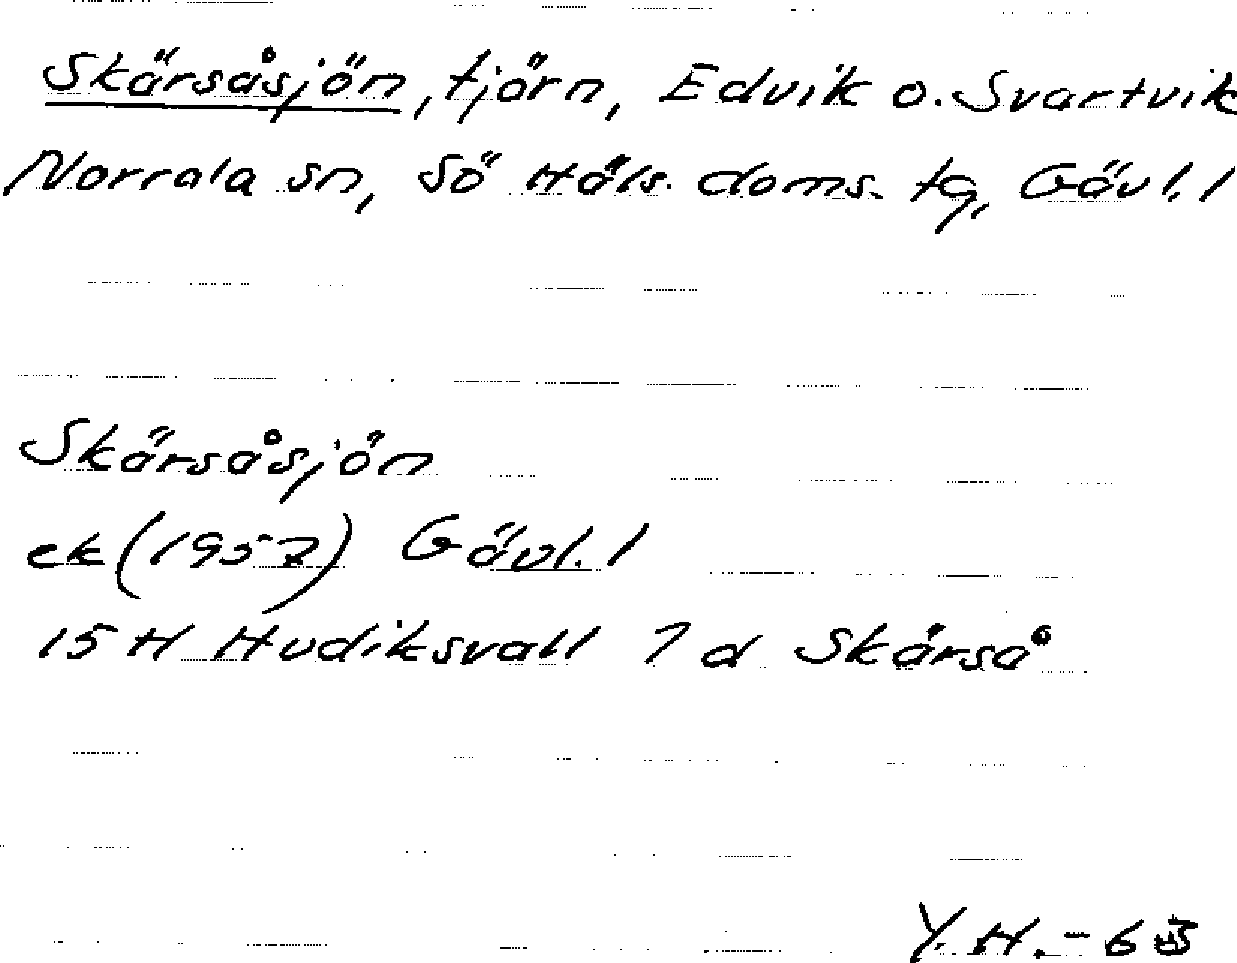 Skärsåsjön, tjärn, Edvik o. Svartvik
Norrala sn, Sö Häls. doms. tg, Gävl. l
Skärsåsjön
ek (1957) Gävl. l
15 H Hudiksvall 7 d Skärså
Y. H. -